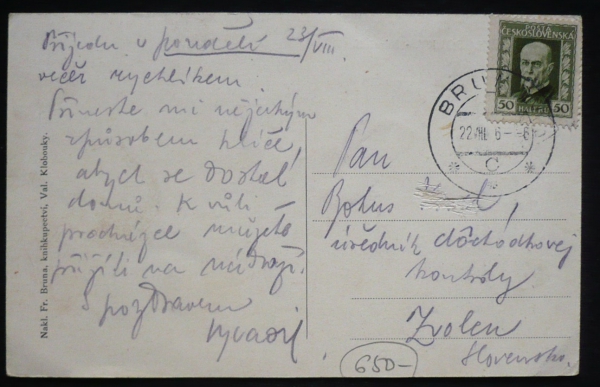 Přijedu v pondělí 23/VIII.
večer rychlíkem.
Přineste mi nějakým
způsobem klíče,
abych se dostal
domů. K vůli
procházce můžete
přijíti na nádraží.
S pozdravem
Nakl. Fr. Bruna, knihkupectví, Val. Klobouky.
POŠTA
ČESKOSLOVENSKÁ
50 50
22.VIII. 6
C
Pan
Bohus
úředník důchodkové
kontroly
Zvolen
Slovensko.
650-